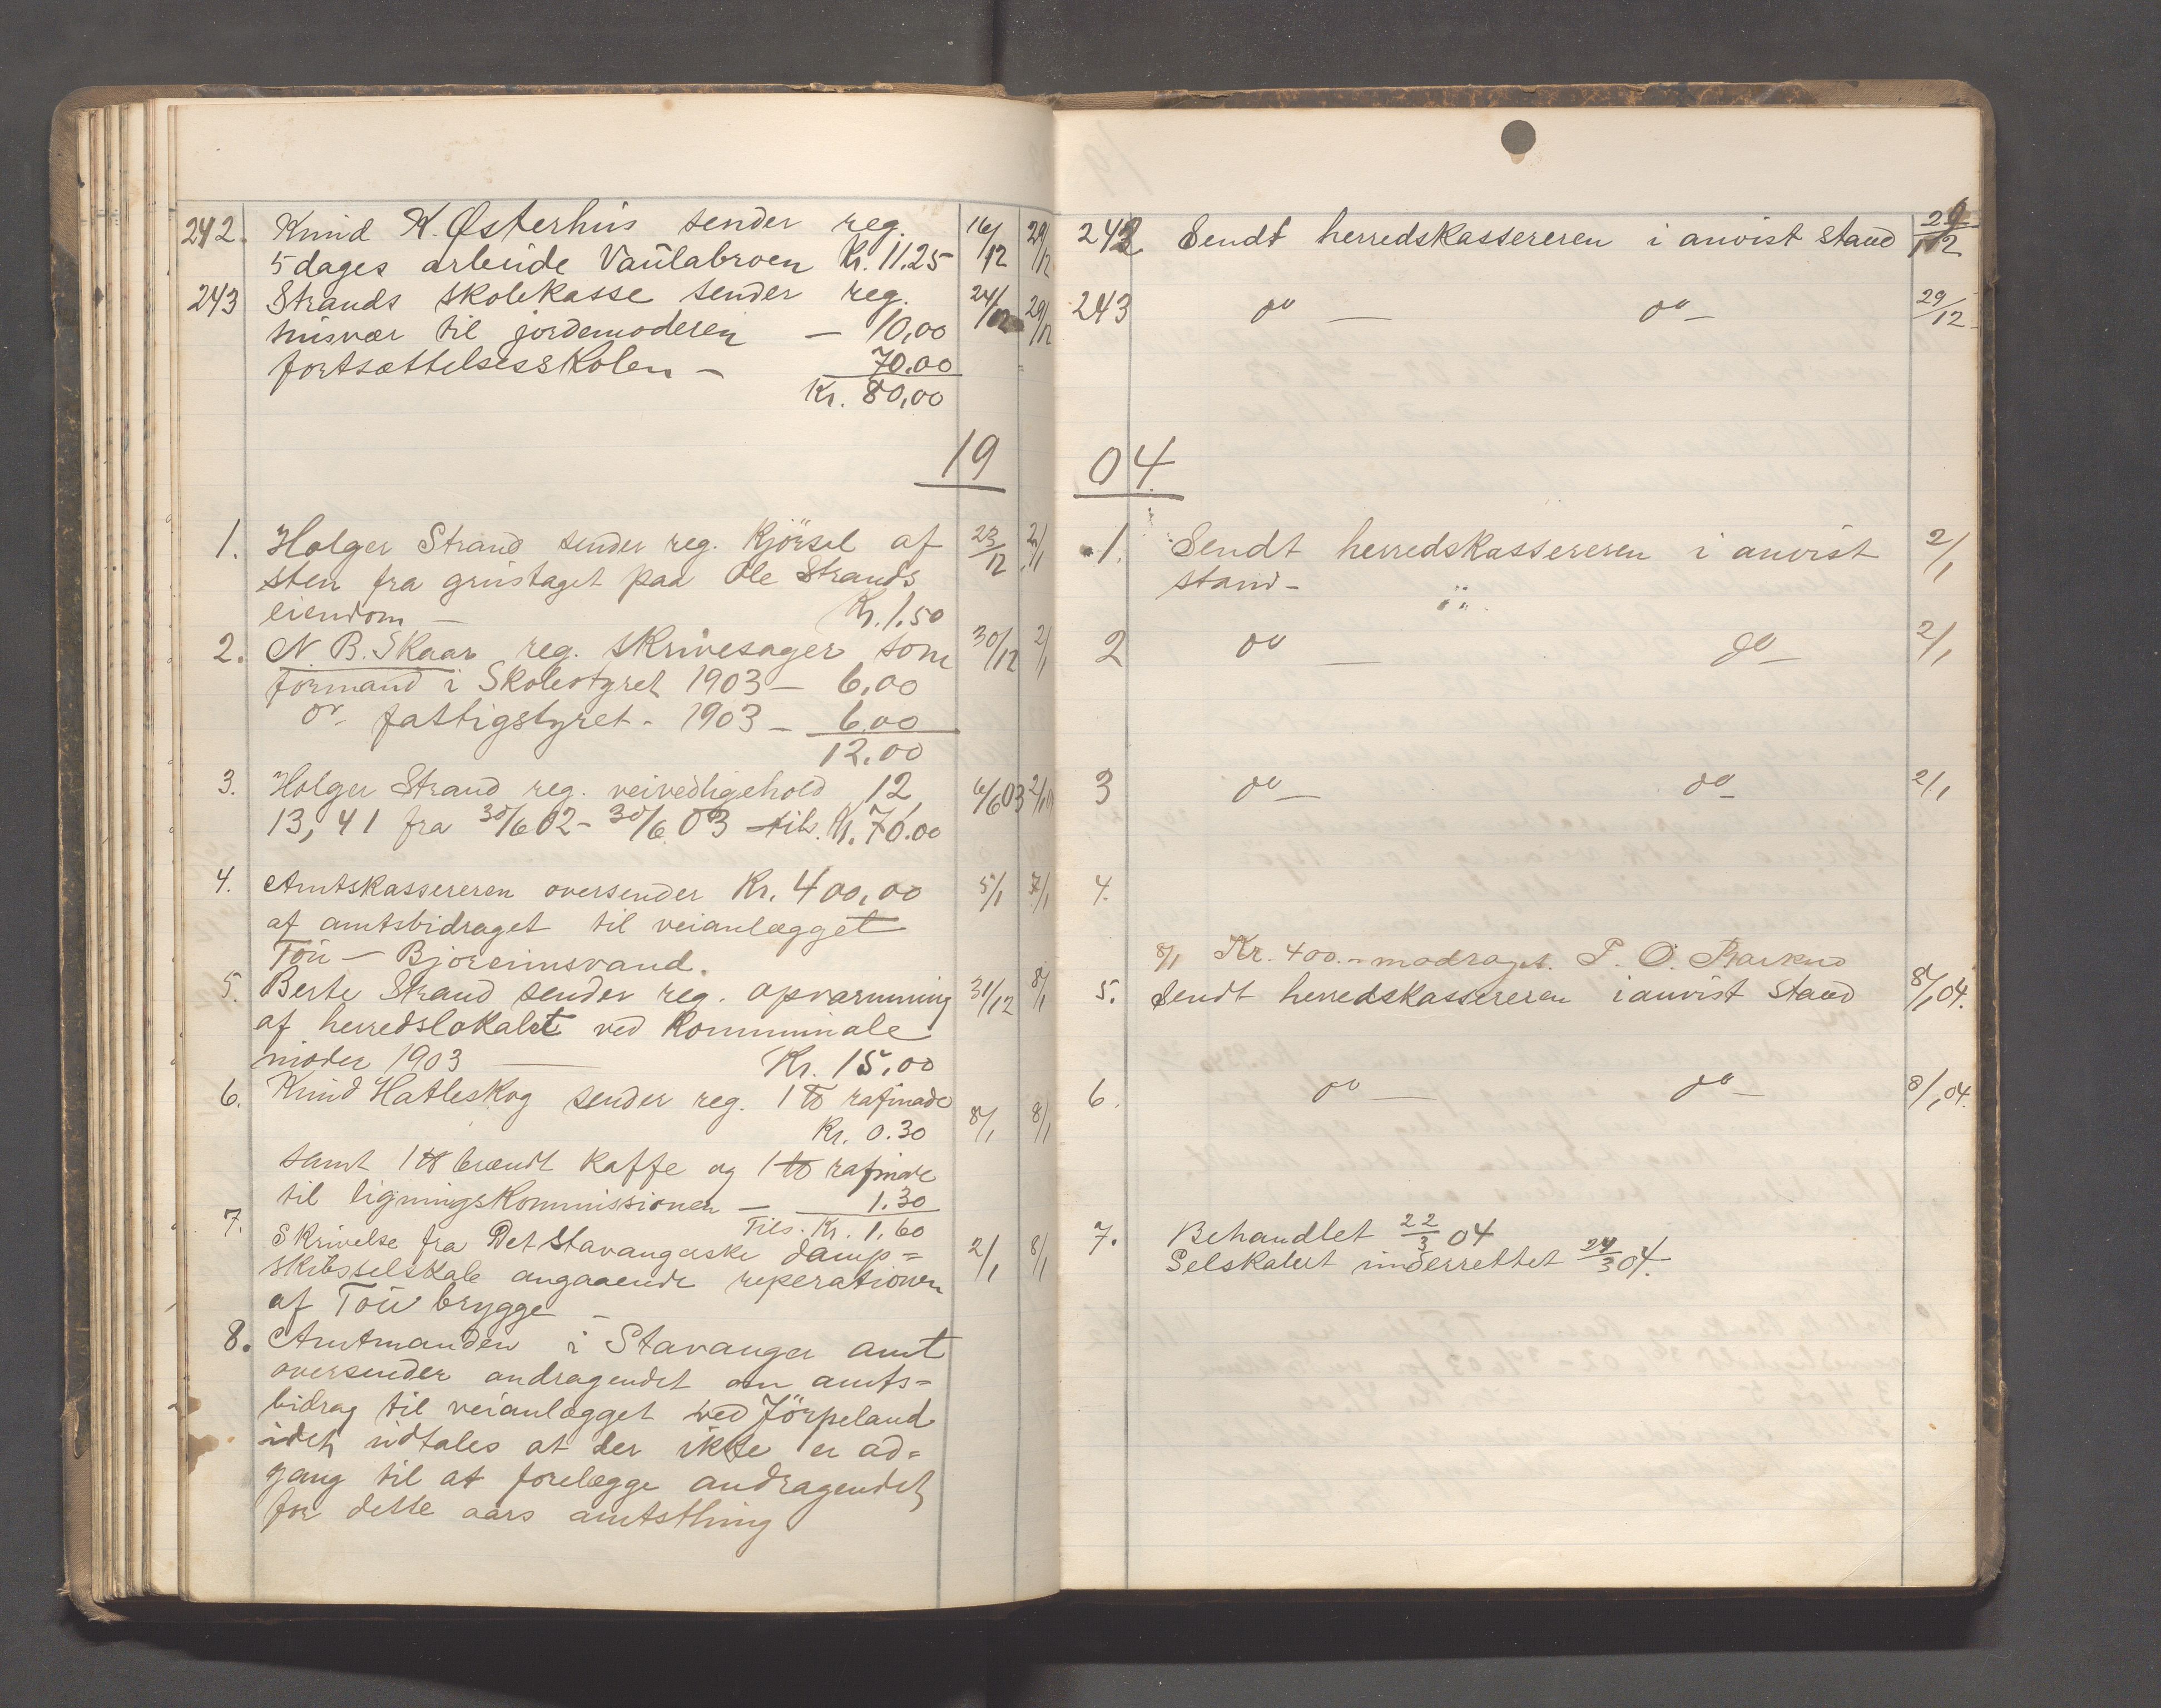 242. Knud K. Østerhus sender reg. 16/12 29/12
5 dages arbeide Vaulabroen Kr. 11.25
243 Strands skolekasse sender reg. 24/12 29/12
husvær til jordemoderen — 10,00
fortsættelsesskolen — 70.00
Kr. 80,00
19
1. Holger Strand sender reg. Kjörsel af 23/12 2/1
sten fra grustaget paa Ole Strands
eiendom — Kr. 1.50
2. N. B. Skaar reg. skrivesager som 30/12 2/1
formand i Skolestyret 1903 — 6.00
do - fattigstyret - 1903 — 6.00
12.00
3. Holger Strand reg. veivedligehold 12, 6/6 03 2/1 04
13, 41 fra 30/6 02 - 30/6 03 tils. Kr. 70.00
4. Amtskassereren oversender Kr. 400,00 5/1 7/1
af amtsbidraget til veianlægget
Tou — Björeimsvand.
5. Berte Strand sender reg. opvarmning 31/12 8/1
af herredslokalet ved Kommunale
möder 1903 — Kr. 15,00
6. Knud Hatleskog sender reg. 1 ℔ rafinade 8/1 8/1
Kr. 0.30
samt 1 ℔ brændt kaffe og 1 ℔ rafinade
til ligningskommissionen — 1.30
Tils. Kr. 1.60
7. Skrivelse fra Det Stavangerske damp= 2/1 8/1
skibsselskab angaaende reperationen
af Tou brygge —
8. Amtmanden i Stavanger amt
oversender andragendet om amts=
bidrag til veianlægget ved Jörpeland
idet udtales at der ikke er ad=
gang til at forelægge andragendet
for dette aars amtsthing
242 Sendt herredskassereren i anvist stand 29/12
243 do — do — 29/12
04.
1. Sendt herredskassereren i anvist 2/1
stand —
2 do — do — 2/1
3 do — do — 2/1
4.
8/1 Kr. 400.- modtaget. P. O.
5. Sendt herredskassereren i anvist stand 8/1 04.
6. do — do — 8/1 04.
7. Behandlet 22/3 04
Selskabet underrettet 24/3 04.